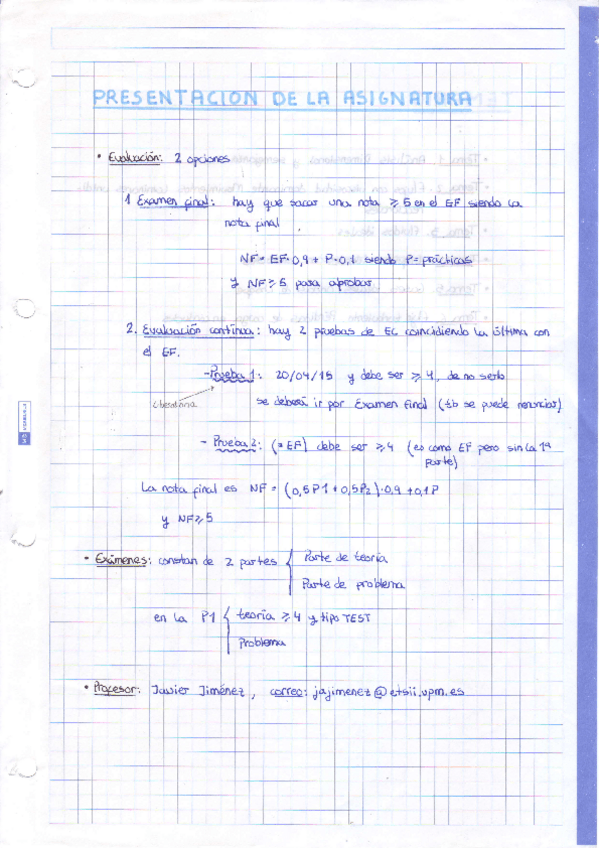 PRESENTACION DE LA ASIGNATURA
• Evaluación: 2 opciones
1 Examen final: hay que sacar una nota ≥ 5 en el EF siendo la
nota final
NF = EF·0,9 + P·0,1 siendo P = prácticas
y NF ≥ 5 para aprobar
2. Evaluación contínua: hay 2 pruebas de EC coincidiendo la última con
el EF.
- Prueba 1: 20/04/15 y debe ser ≥ 4, de no serlo
se deberá ir por Examen Final (tb se puede renunciar)
- Prueba 2: (= EF) debe ser ≥ 4 (es como EF pero sin la 1ª
parte)
La nota final es NF = (0,5P1 + 0,5P2)·0,9 + 0,1P
y NF ≥ 5
• Exámenes: constan de 2 partes { Parte de teoría
Parte de problema
en la P1 { teoría ≥ 4 y tipo TEST
Problema
• Profesor: Javier Jiménez, correo: jajimenez@etsii.upm.es